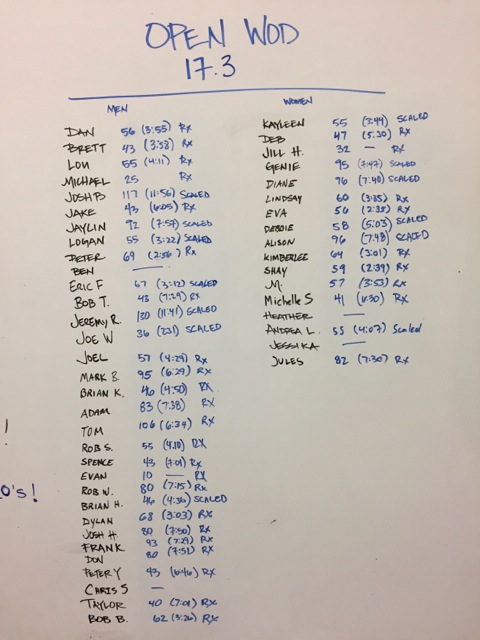 OPEN WOD
17.3
MEN
DAN 56 (3:55) Rx
BRETT 43 (3:58) Rx
LOU 55 (4:11) Rx
MICHAEL 25 Rx
JOSH B 117 (11:56) SCALED
JAKE 43 (6:05) Rx
JAYLIN 92 (7:59) SCALED
LOGAN 55 (3:22) SCALED
PETER 69 (2:56) Rx
BEN —
ERIC F 67 (3:12) SCALED
BOB T. 43 (7:29) Rx
JEREMY R. 130 (11:41) SCALED
JOE W 36 (231) SCALED
JOEL 57 (4:29) Rx
MARK B. 95 (6:29) Rx
BRIAN K. 46 (4:50) Rx
ADAM 83 (7:38) RX
TOM 106 (6:34) RX
ROB S. 55 (4:10) RX
SPENCE 43 (7:01) Rx
EVAN 10 — RX
ROB W. 80 (7:15) Rx
BRIAN H. 46 (4:36) SCALED
DYLAN 68 (3:03) RX
JOSH H 80 (7:50) RX
FRANK 93 (7:29) Rx
DON 80 (7:51) RX
PETER Y 43 (6:46) RX
CHRIS S —
TAYLOR 40 (7:01) Rx
BOB B. 62 (3:26) RX
WOMEN
KAYLEEN 55 (3:44) SCALED
DEB 47 (5:30) Rx
JILL H. 32 — RX
GENIE 95 (7:47) SCALED
DIANE 96 (7:40) SCALED
LINDSAY 60 (3:35) RX
EVA 56 (2:35) RX
DEBBIE 58 (5:03) SCALED
ALISON 96 (7:48) SCALED
KIMBERLEE 64 (3:01) RX
SHAY 59 (2:39) RX
J.M. 57 (3:53) RX
Michelle S 41 (6:30) Rx
HEATHER —
ANDREA L. 55 (4:07) Scaled
JESSIKA —
JULES 82 (7:30) RX
!
0's!